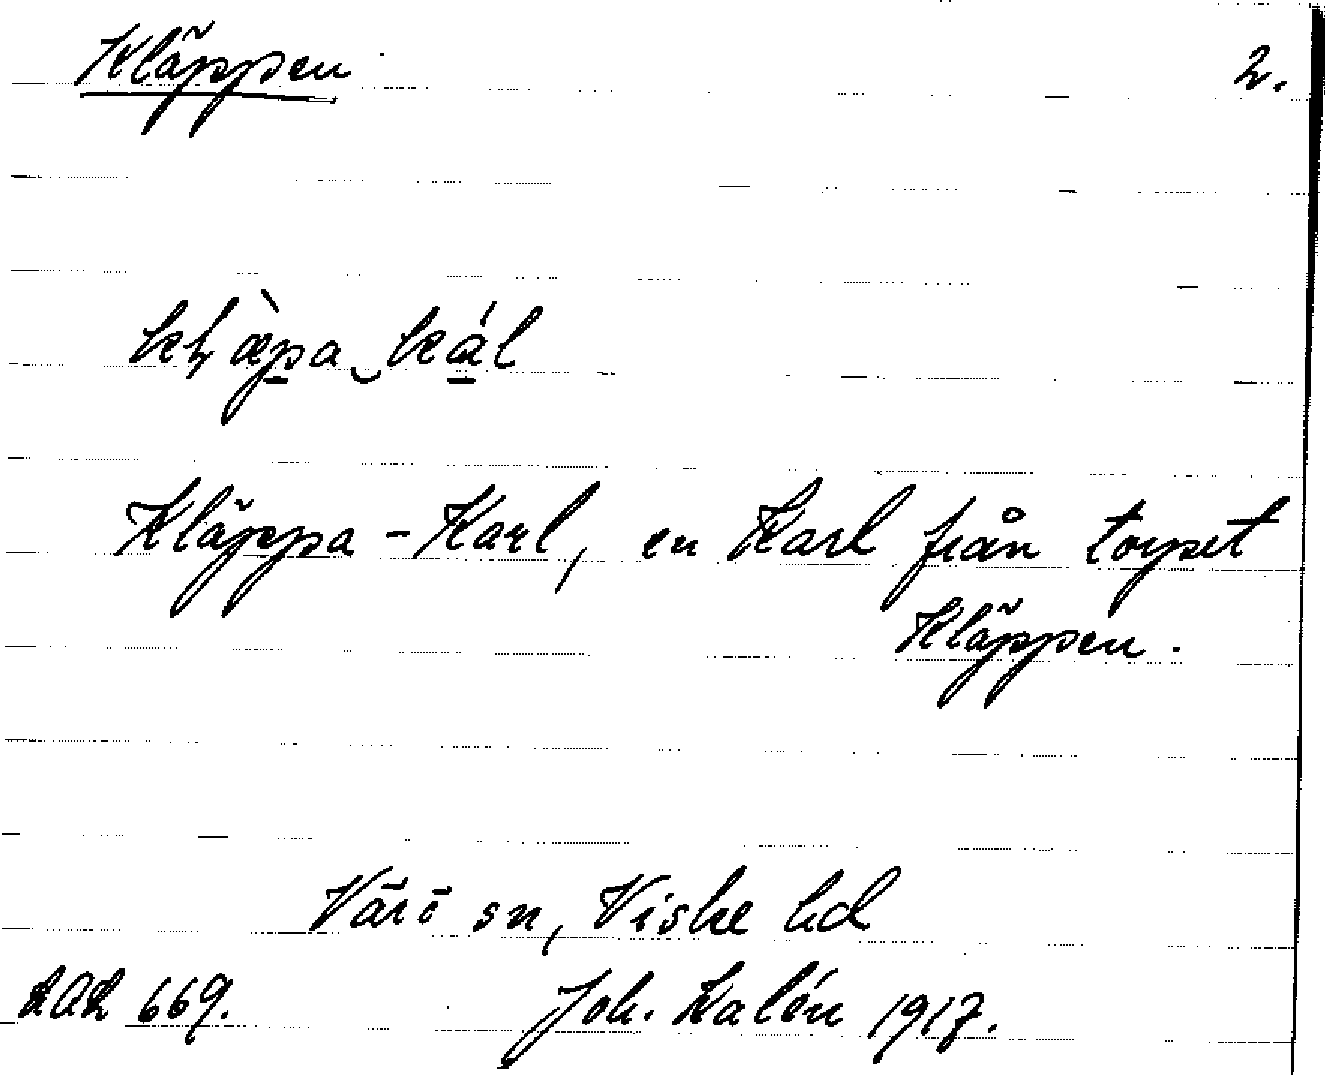 Kläppen 2.
Kläppa-Karl, en Karl från torpet
Kläppen.
Värö sn, Viske hd
LAL 669. Joh. Kalén 1917.